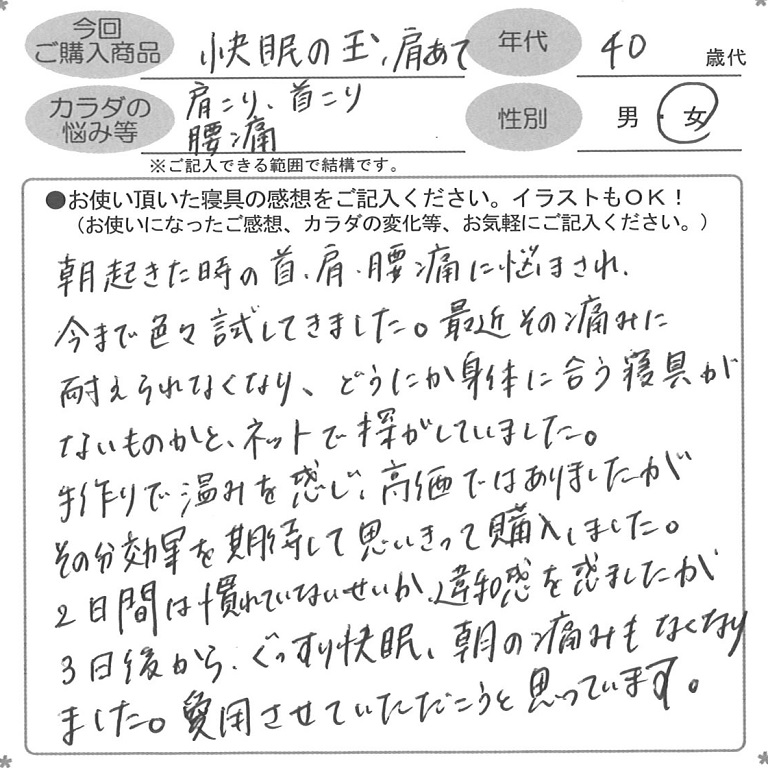 今回
ご購入商品
快眠の玉、肩あて
年代
40
歳代
カラダの
悩み等
肩こり、首こり
腰痛
性別
男・女
※ご記入できる範囲で結構です。
●お使い頂いた寝具の感想をご記入ください。イラストもOK！
（お使いになったご感想、カラダの変化等、お気軽にご記入ください。）
朝起きた時の首、肩、腰痛に悩まされ、
今まで色々試してきました。最近その痛みに
耐えられなくなり、どうにか身体に合う寝具が
ないものかと、ネットで探がしていました。
手作りで温みを感じ、高価ではありましたが
その分効果を期待して思いきって購入しました。
2日間は慣れていないせいか、違和感を感ましたが
3日後から、ぐっすり快眠、朝の痛みもなくなり
ました。愛用させていただこうと思っています。